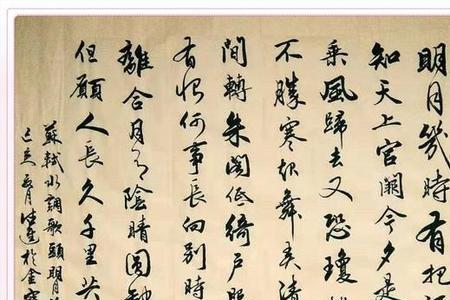 明月幾時有把
知天上宮闕今夕是
乘風歸去又恐瓊
不勝寒起舞弄清
間轉朱閣低綺戶照
有恨何事長向別時
離合月有陰晴圓缺
但願人長久千里共
蘇軾水調歌頭明月
己亥 月 於金